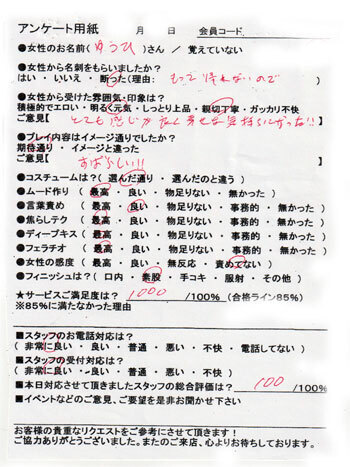 アンケート用紙　　月　　日　会員コード
●女性のお名前( ゆうひ )さん / 覚えていない
●女性から名刺をもらいましたか?
はい・いいえ・断った(理由: もって帰れないので )
●女性から受けた雰囲気・印象は?
積極的でエロい・明るく元気・しっとり上品・親切丁寧・ガッカリ不快
ご意見【 とても感じが良く幸せな気持ちになった!! 】
●プレイ内容はイメージ通りでしたか?
期待通り・イメージと違った
ご意見【 すばらしい!!! 】
●コスチュームは?( 選んだ通り ・ 選んだのと違う )
●ムード作り( 最高 ・ 良い ・ 物足りない ・ 無かった )
●言葉責め ( 最高 ・ 良い ・ 物足りない ・ 事務的 ・ 無かった )
●焦らしテク( 最高 ・ 良い ・ 物足りない ・ 事務的 ・ 無かった )
●ディープキス( 最高 ・ 良い ・ 物足りない ・ 事務的 ・ 無かった )
●フェラチオ ( 最高 ・ 良い ・ 物足りない ・ 事務的 ・ 無かった )
●女性の感度( 最高 ・ 良い ・ 無反応 ・ 責めてない )
●フィニッシュは?( 口内 ・ 素股 ・ 手コキ ・ 服射 ・ その他 )
★サービスご満足度は? 1000 /100% (合格ライン85%)
※85%に満たなかった理由
■スタッフのお電話対応は?
( 非常に良い ・ 良い ・ 普通 ・ 悪い ・ 不快 ・ 電話してない )
■スタッフの受付対応は?
( 非常に良い ・ 良い ・ 普通 ・ 悪い ・ 不快 )
■本日対応させて頂きましたスタッフの総合評価は? 100 /100%
■イベントなどのご意見、ご要望を是非お聞かせ下さい
お客様の貴重なリクエストをご参考にさせて頂きます!
ご協力ありがとうございました。またのご来店、心よりお待ちしております。